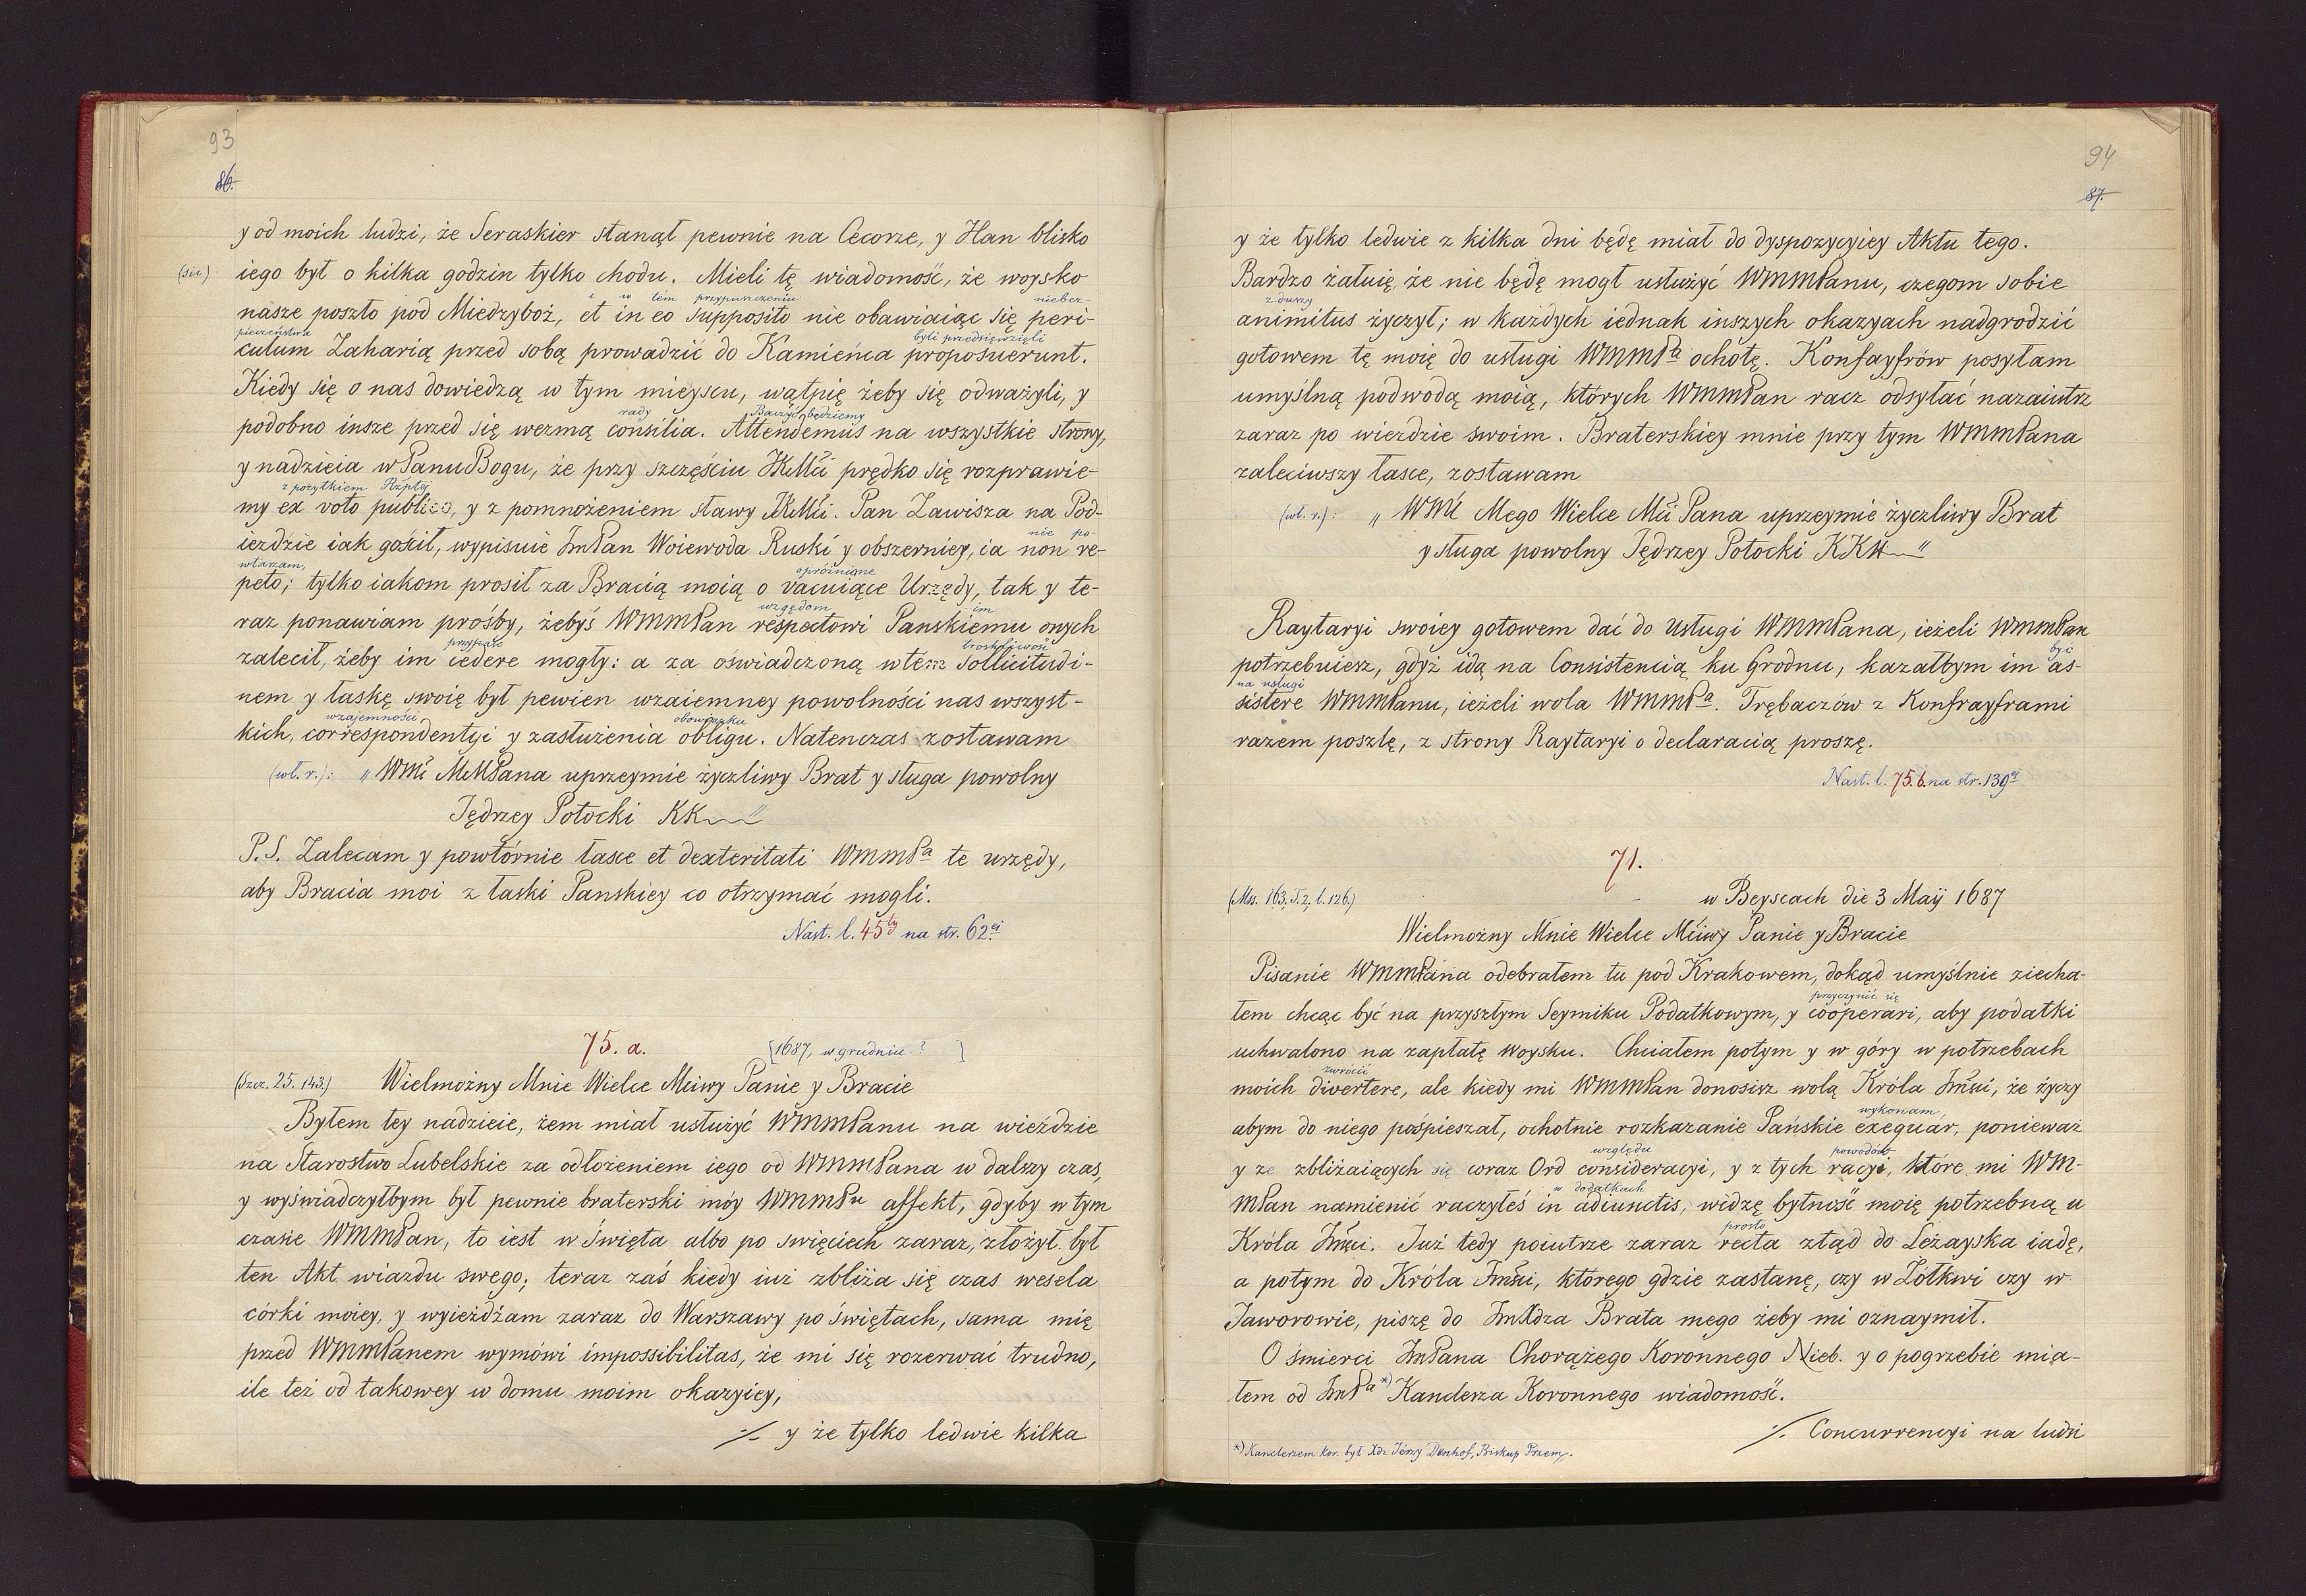 93
86.
y od moich ludzi, że Seraskier stanął pewnie na Cecorze, y Han blisko
(sic) iego był o kilka godzin tylko chodu. Mieli tę wiadomość, że woysko
i w tem przypuszczeniu niebez-
nasze poszło pod Miedzyboż, et in eo supposito nie obawiaiąc się peri-
pieczeństwa byli przedsięwzięli
culum Zaharią przed sobą prowadzić do Kamieńca proposuerunt.
Kiedy się o nas dowiedzą w tym mieyscu, wątpię żeby się odważyli, y
rady Baczyć będziemy
podobno insze przed się wezmą consilia. Attendemus na wszystkie strony,
y nadzieia w Panu Bogu, że przy szczęściu JKMći prędko się rozprawie-
z pożytkiem Rzptej
my ex voto publico, y z pomnożeniem sławy JKMći. Pan Zawisza na Pod-
nie po-
iezdzie iak gościł, wypisuie JmPan Woiewoda Ruski y obszerniey, ia non re-
wtarzam, opróżnione
peto; tylko iakom prosił za Bracią moią o vacuiące Urzędy, tak y te-
względom im
raz ponawiam prośby, żebyś WMMPan respectowi Panskiemu onych
przypaść troskliwość
zalecił, żeby im cedere mogły: a za oświadczoną w tém sollicitudi-
nem y łaskę swoię był pewien wzaiemney powolności nas wszyst-
wzajemności obowiązku
kich, correspondentyi y zasłużenia obligu. Natenczas zostawam
(wł. r.): „WMć MMPana uprzeymie życzliwy Brat y sługa powolny
Jędrzey Potocki KK"
P.S. Zalecam y powtórnie łasce et dexteritati WMMPa te urzędy,
aby Bracia moi z łaski Panskiey co otrzymać mogli.
Nast. l. 45ty na str. 62ej
75. a. [1687, w grudniu ? ]
(Szcz. 25. 143.) Wielmożny Mnie Wielce Mciwy Panie y Bracie
Byłem tey nadzieie, żem miał usłużyć WMMPanu na wieździe
na Starostwo Lubelskie za odłożeniem iego od WMMPana w dalszy czas,
y wyświadczyłbym był pewnie braterski móy WMMPu affekt, gdyby w tym
czasie WMMPan, to iest w Święta albo po święciech zaraz, złożył był
ten Akt wiazdu swego; teraz zaś kiedy iuż zbliża się czas wesela
córki moiey, y wyieżdżam zaraz do Warszawy po świętach, sama mię
przed WMMPanem wymówi impossibilitas, że mi się rozerwać trudno,
ile też od takowey w domu moim okazyiey,
./. y że tylko ledwie kilka
94
87.
y że tylko ledwie z kilka dni będę miał do dyspozycyiey Aktu tego.
Bardzo żałuię, że nie będę mogł usłużyć WMMPanu, czegom sobie
z duszy
animitus życzył; w każdych iednak inszych okazyach nadgrodzić
gotowem tę moię do usługi WMMPa ochotę. Konfayfrów posyłam
umyślną podwodą moią, których WMMPan racz odsyłać nazaiutrz
zaraz po wiezdzie swoim. Braterskiey mnie przy tym WMMPana
zaleciwszy łasce, zostawam
(wł. r.): „WMć Mego Wielce Mći Pana uprzeymie życzliwy Brat
y sługa powolny Jędrzey Potocki KKH"
Raytaryi swoiey gotowem dać do Usługi WMMPana, ieżeli WMMPan
być
potrzebuiesz, gdyż idą na Consistencią ku Grodnu, kazałbym im as-
na usługi
sistere WMMPanu, ieżeli wola WMMPa. Trębaczów z Konfrayframi
razem poszlę, z strony Raytaryi o declaracią proszę.
Nast. l. 75.b. na str. 139ej
71.
(Mss. 163, T.2, l. 126.) w Beyscach die 3 Maÿ 1687
Wielmożny Mnie Wielce Mćiwy Panie y Bracie
Pisanie WMMPana odebrałem tu pod Krakowem, dokąd umyślnie ziecha-
przyczynić się
łem chcąc być na przyszłym Seymiku Podatkowym, y cooperari, aby podatki
uchwalono na zapłatę woysku. Chciałem potym y w góry w potrzebach
zwrócić
moich divertere, ale kiedy mi WMMPan donosisz wolą Króla Jmści, że życzy
wykonam,
abym do niego pośpieszał, ochotnie rozkazanie Pańskie exequar, ponieważ
względu powodów
y ze zbliżaiących się coraz Ord consideracyi, y z tych racyi, które mi WM-
w dodatkach
MPan namienić raczyłeś in adiunctis, widzę bytność moię potrzebną u
prosto
Króla Jmści. Już tedy poiutrze zaraz recta ztąd do Leżayska iadę,
a potym do Króla Jmści, którego gdzie zastanę, czy w Żółkwi czy w
Jaworowie, piszę do JmXdza Brata mego żeby mi oznaymił.
O śmierci JmPana Chorążego Koronnego Nieb. y o pogrzebie mia-
łem od JmPa *) Kanclerza Koronnego wiadomość.
./. Concurrencyi na ludzi
*) Kanclerzem kor. był Xdz Jerzy Denhof, Biskup Przem.